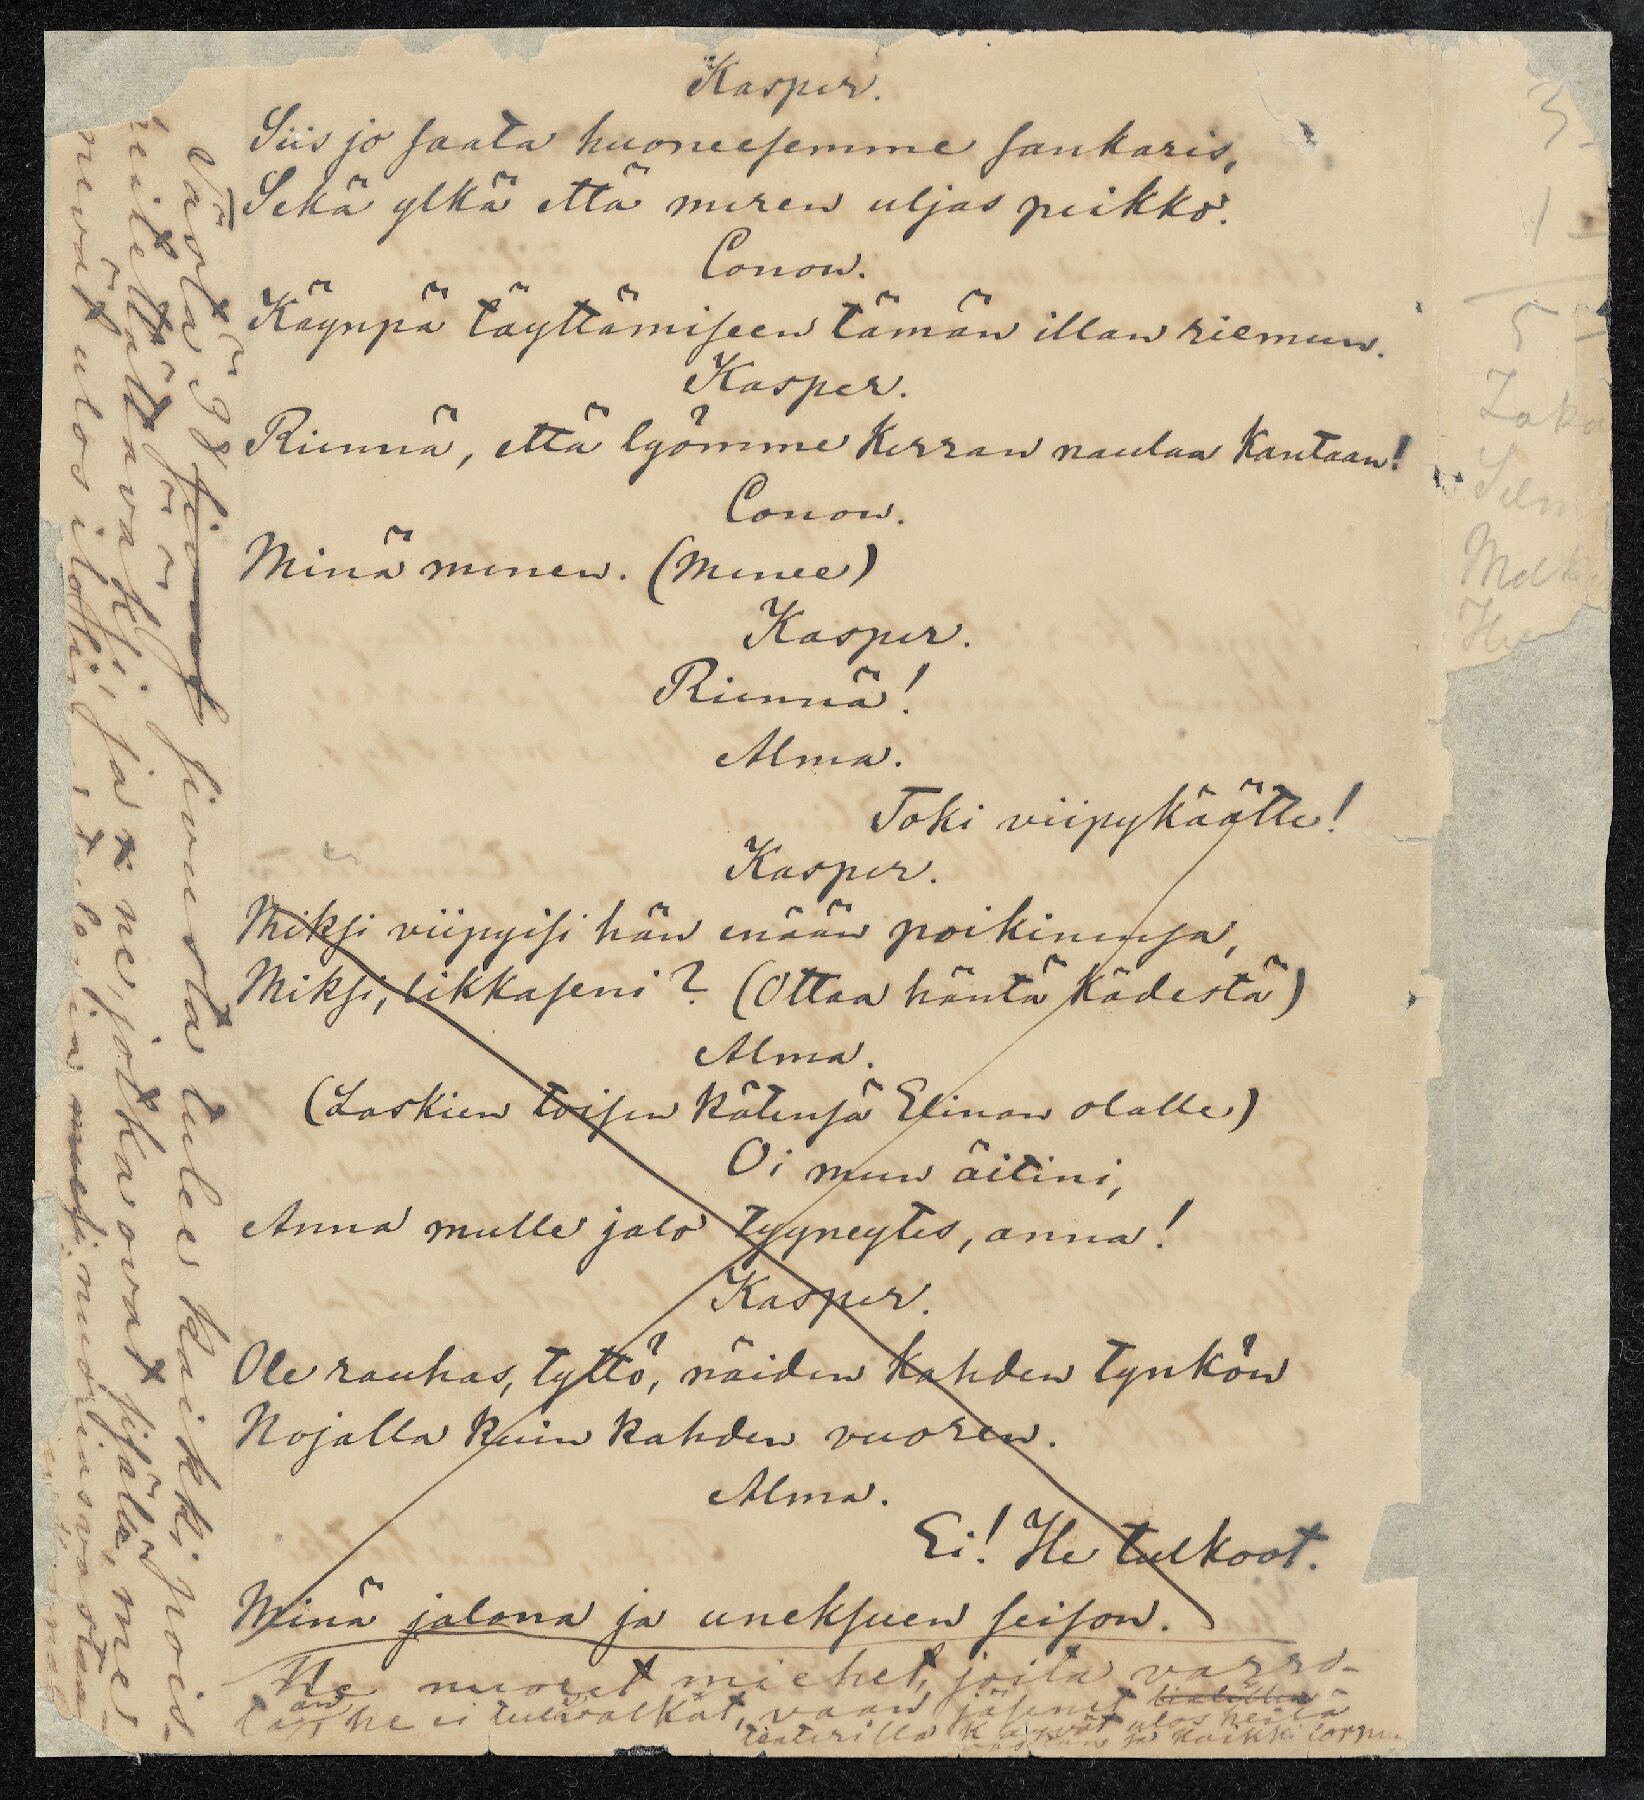 Kasper.
Siis jo saata huoneesemme sankaris,
Sekä ylkä että meren uljas peikko.
Conon.
Käynpä täyttämiseen tämän illan riemun.
Kasper.
Riennä, että lyömme kerran naulaa kantaan!
Conon.
Minä menen. (Menee)
Kasper.
Riennä!
Alma.
Toki viipykäätte!
Kasper.
Miksi viipyisi hän enään poikinensa,
Miksi, likkaseni? (Ottaa häntä kädestä)
Alma.
(Laskien toisen kätensä Elinan olalle)
Oi mun äitini,
Anna mulle jalo tyyneytes, anna!
Kasper.
Ole rauhas, tyttö, näiden kahden tynkön
Nojalla kuin kahden vuoren.
Alma.
Ei! He tulkoot.
Minä jalona ja uneksuen seison.
Ne nuoret miehet, joita varro-
taan he ei tulevatkät, vaan jäsenet
teaterilla käyvät ulos heitä
ja kaikki
Västä 38 sivusta tulee kaikki pois-
ja ne, jotka ovat sisällä, me-
nevät ulos nuoria vastaan
3
1
5